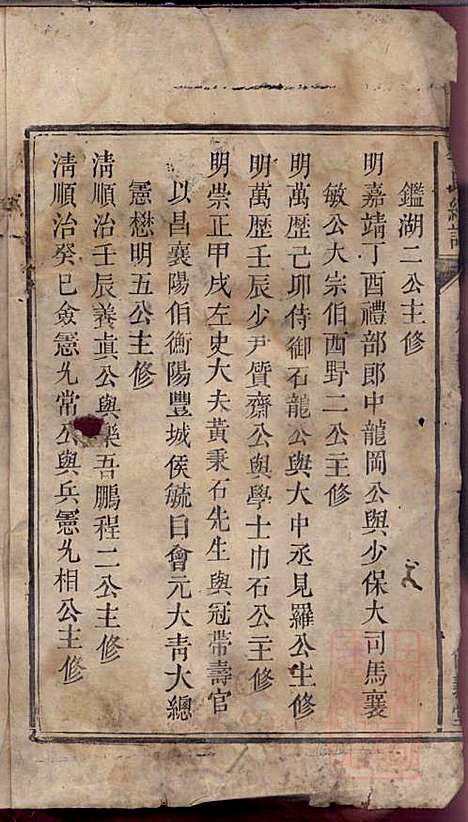 鑑湖二公主修
明嘉靖丁酉禮部郎中龍岡公與少保大司馬襄
敏公大宗伯西野二公主修
明萬歷己卯侍御石龍公與大中丞見羅公主修
明萬歷壬辰少尹質齋公與學士巾石公主修
明崇正甲戌左史大夫黃秉石先生與冠帶壽官
以昌襄陽伯衡陽豐城侯毓日會元大青大總
憲懋明五公主修
淸順治壬辰養眞公與樂吾鵬程二公主修
淸順治癸巳僉憲九常公與兵憲九相公主修